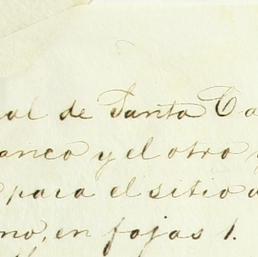 al de Santa Ca
anco y el otro
para el sitio
no, en fojas 1.